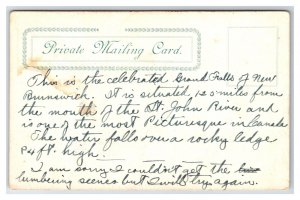 Private Mailing Card.
This is the celebrated Grand Falls of New
Brunswick. It is situated, 220 miles from
the mouth of the St. John River and
is one of the most Picturesque in Canada
The water falls over a rocky ledge
84 ft. high.
I am sorry I couldn't get the
lumbering scenes but I will try again.